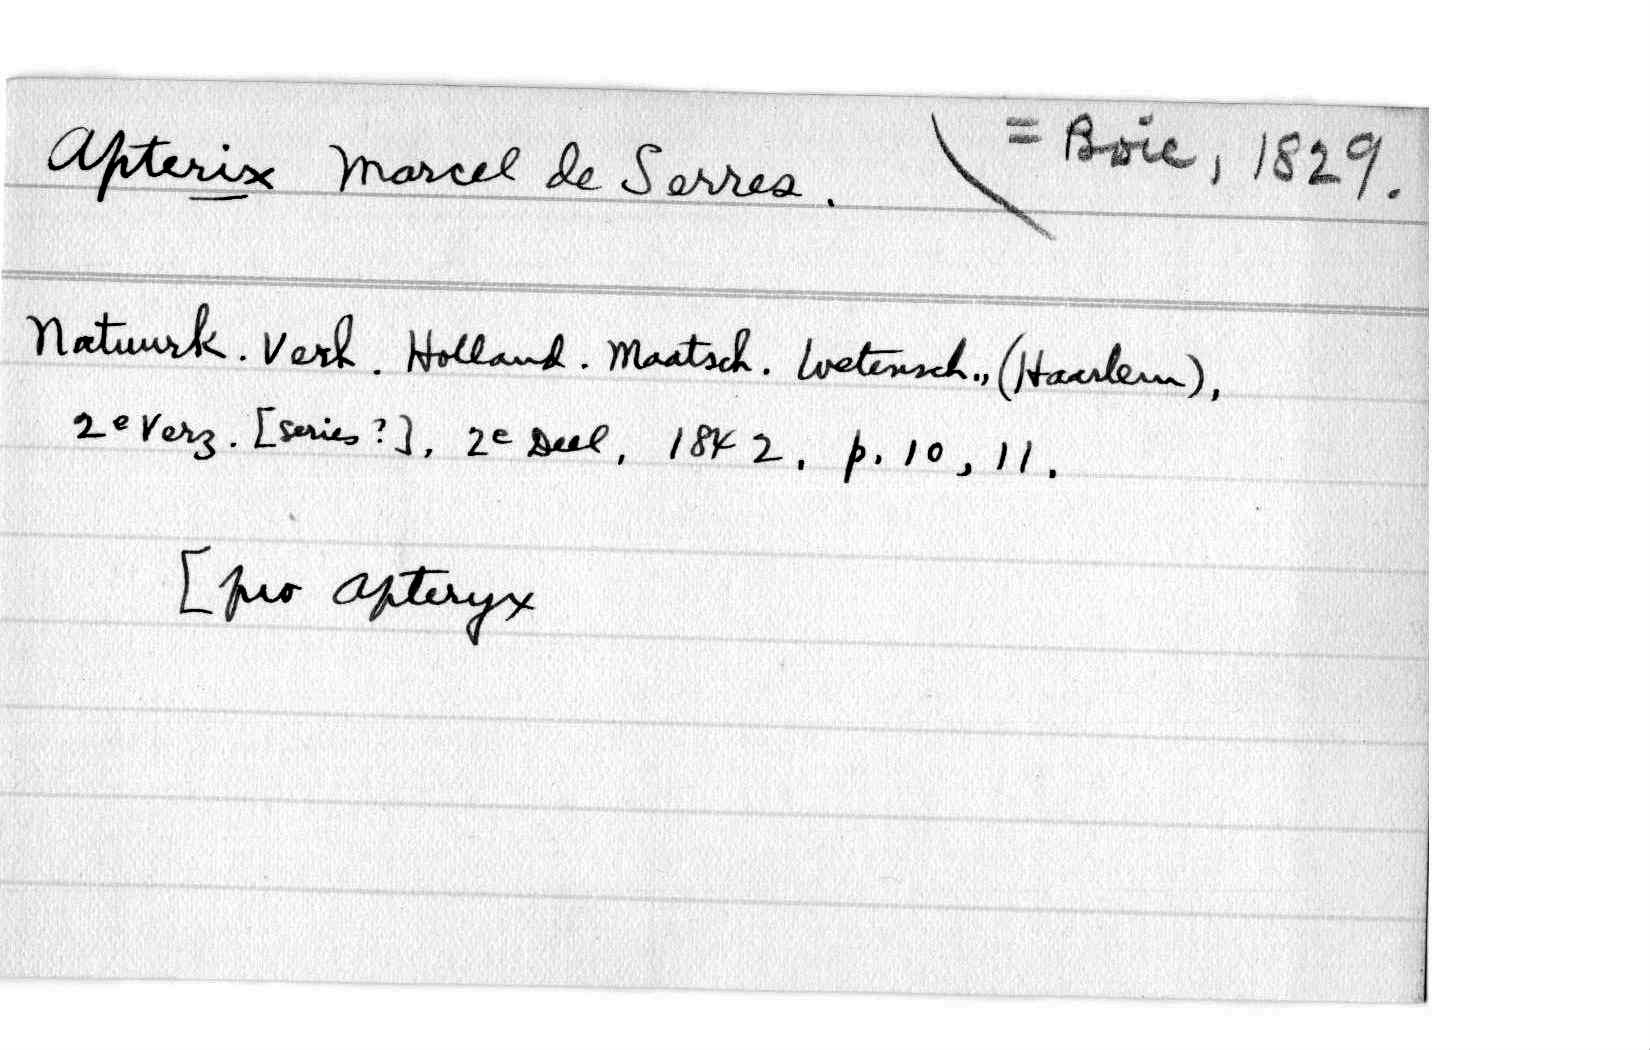 Apterix Marcel de Serres. = Boie, 1829.
Natuurk. Verh. Holland. Maatsch. Wetensch., (Haarlem),
2e Verz. [series?], 2e Deel, 1842, p. 10, 11.
[pro Apteryx